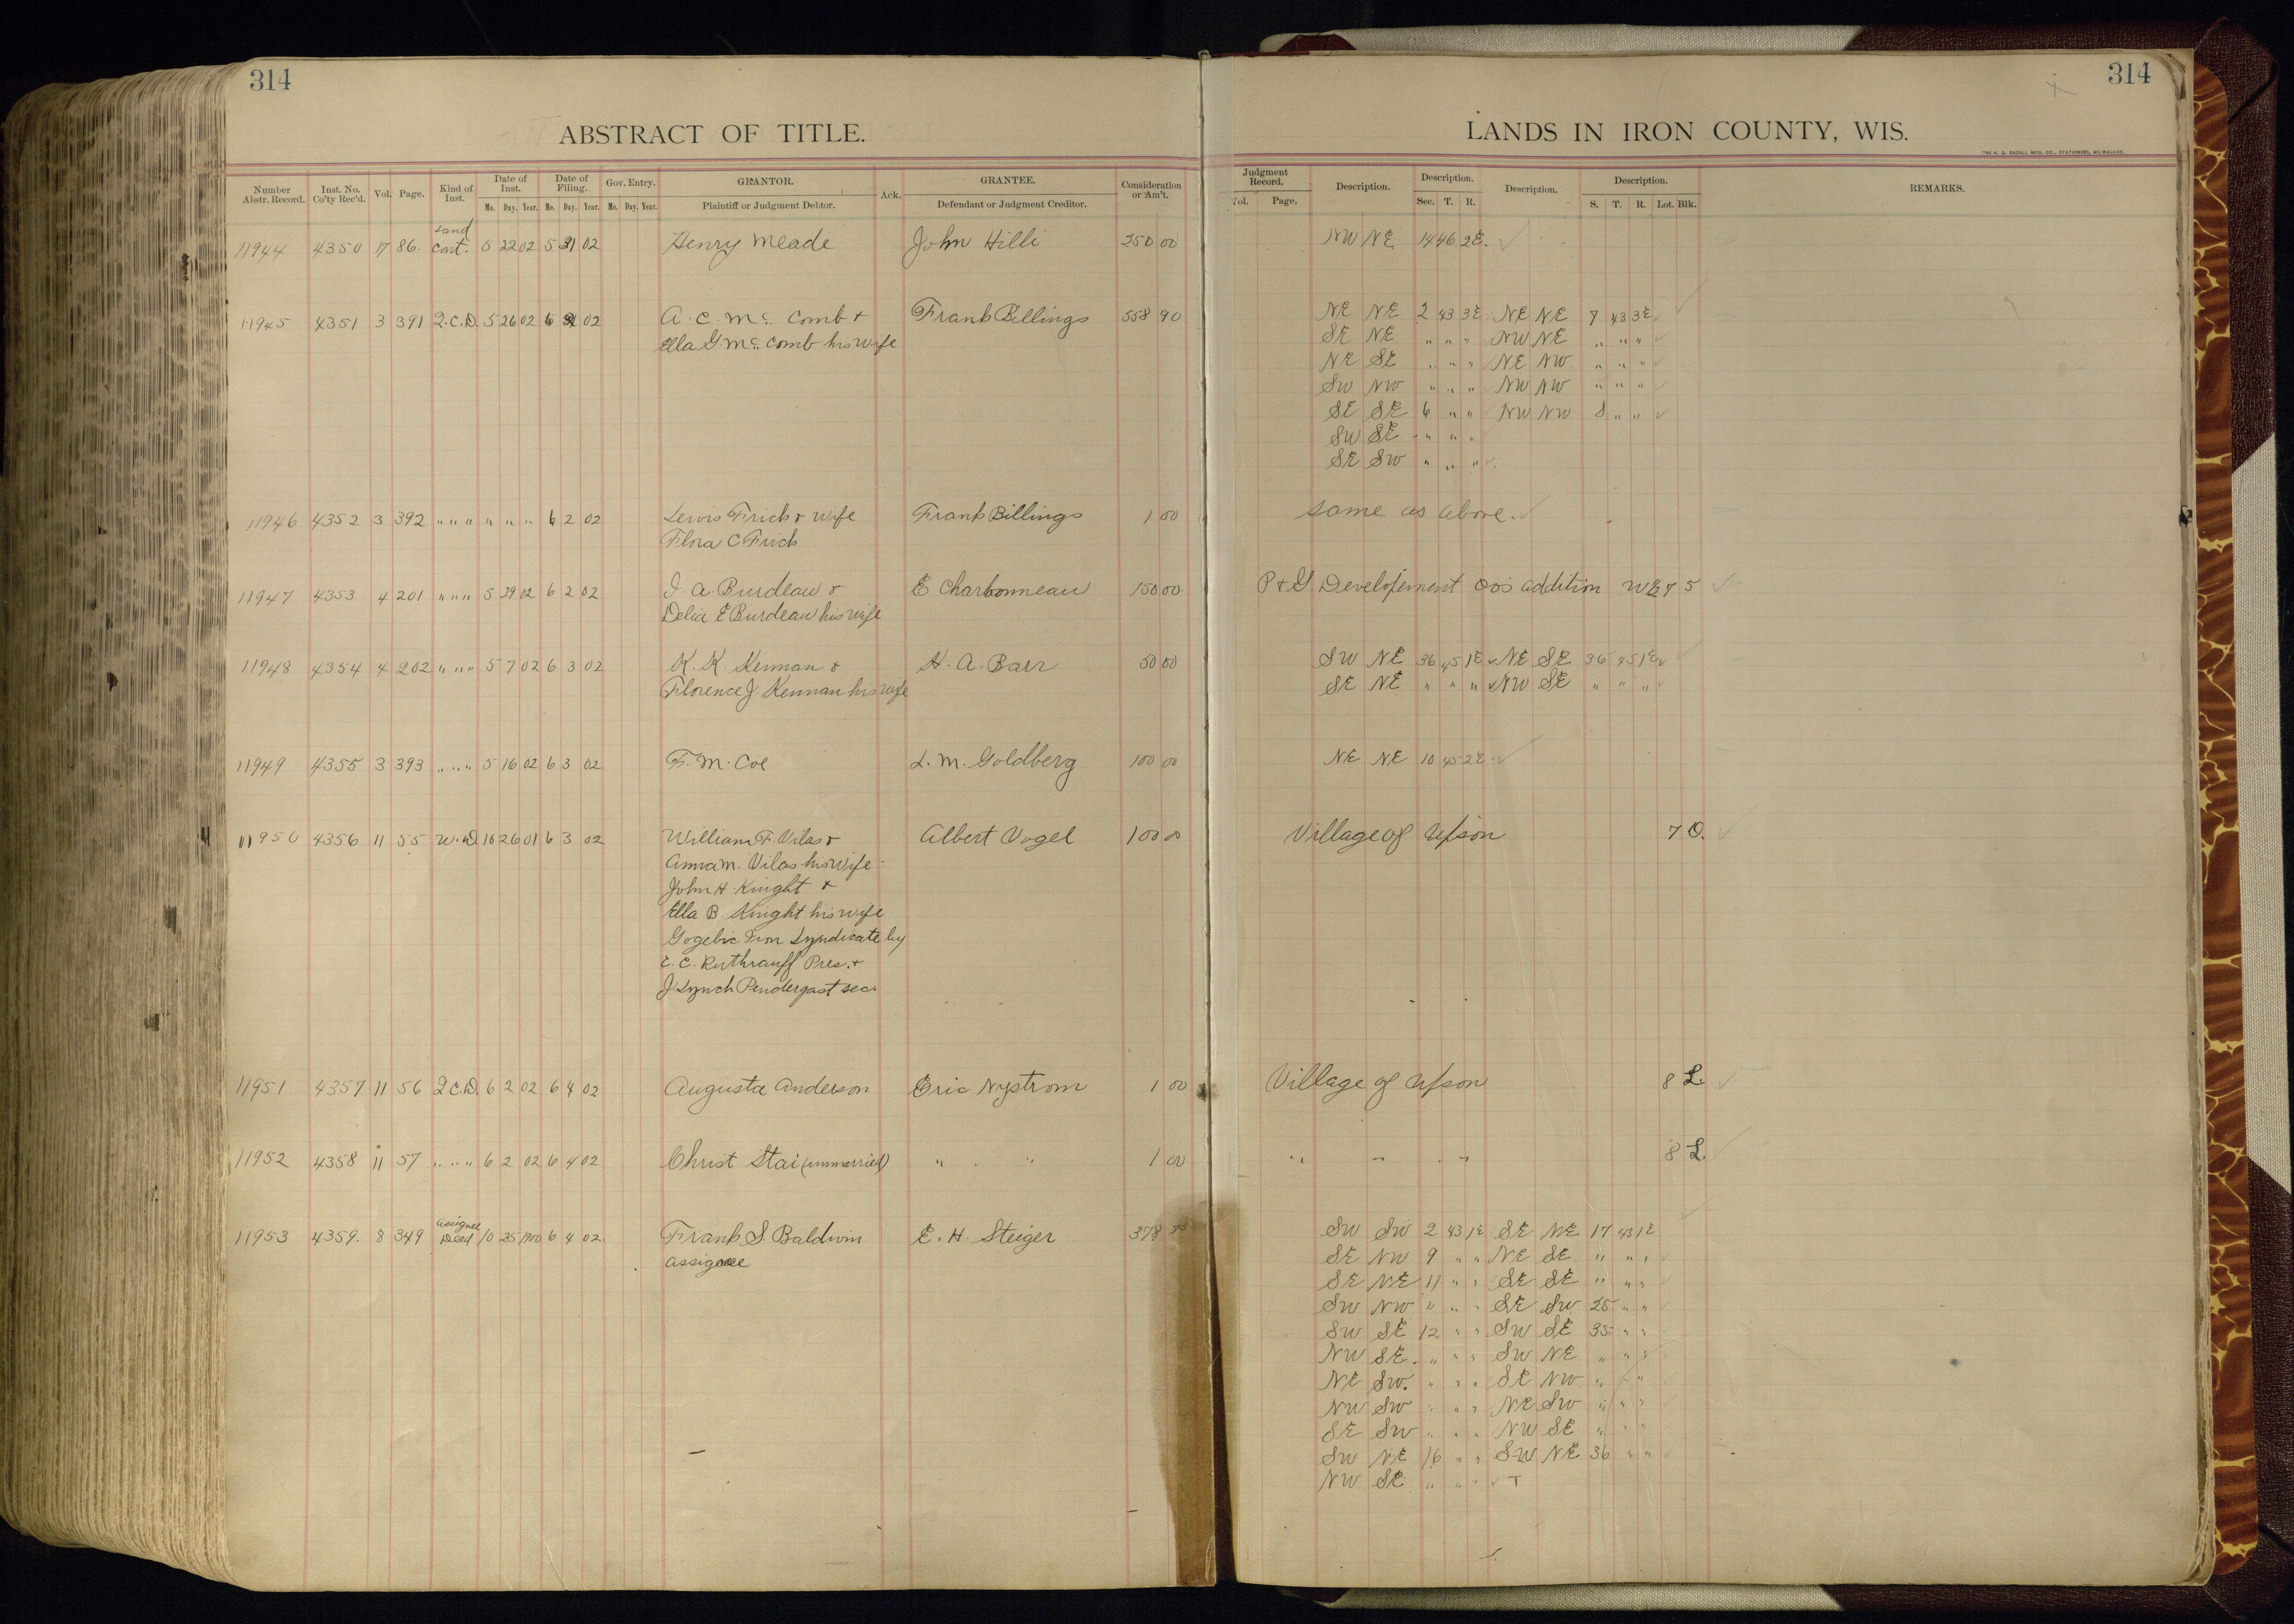 314
314
ABSTRACT OF TITLE.
LANDS IN IRON COUNTY, WIS.
THE H. G. RAZALL MFG. CO., STATIONERS, MILWAUKEE.
Number Abstr. Record. Inst. No. Co'ty Rec'd. Vol. Page. Kind of Inst. Date of Inst. Date of Filing. Gov. Entry. GRANTOR. Ack. GRANTEE. Consideration or Am't. Judgment Record. Description. Description. Description. Description. REMARKS.
Mo. Day. Year. Mo. Day. Year. Mo. Day. Year. Plaintiff or Judgment Debtor. Defendant or Judgment Creditor. Vol. Page. Sec. T. R. S. T. R. Lot. Blk.
11944 4350 17 86. Land Cont. 5 22 02 5 31 02 Henry Meade John Hilli 250 00 NW NE 14 46 2E.
11945 4351 3 391 Q.C.D. 5 26 02 6 2 02 A. C. Mc Comb + Frank Billings 558 90 NE NE 2 43 3E NE NE 7 43 3E
Ella G. Mc Comb his wife SE NE " " " NW NE " " "
NE SE " " " NE NW " " "
SW NW " " " NW NW " " "
SE SE 6 " " NW NW 8 " "
SW SE " " "
SE SW " " "
11946 4352 3 392 " " " " " " 6 2 02 Lewis Frick + wife Frank Billings 1 00 Same as above.
Flora C Frick
11947 4353 4 201 " " " 5 29 02 6 2 02 J. A. Burdeau + E Charbonneau 150 00 P + G Developement Co's addition W 1/2 7 5
Delia E Burdeau his wife
11948 4354 4 202 " " " 5 7 02 6 3 02 K. K. Kennan + H. A. Barr 50 00 SW NE 36 45 1E NE SE 36 45 1E
Florence J. Kennan his wife SE NE " " " NW SE " " "
11949 4355 3 393 " " " 5 16 02 6 3 02 F. M. Coe L. M. Goldberg 100 00 NE NE 10 45 2E
11950 4356 11 55 W.D. 10 26 01 6 3 02 William F. Vilas + Albert Vogel 100 00 Village of Upson 7 O.
Anna M. Vilas his wife
John H. Knight +
Ella B. Knight his wife
Gogebic Iron Syndicate by
E. C. Ruthrauff Pres. +
J. Lynch Pendergast sec.
11951 4357 11 56 Q.C.D. 6 2 02 6 4 02 Augusta Anderson Eric Nystrom 1 00 Village of Upson 8 L.
11952 4358 11 57 " " " 6 2 02 6 4 02 Christ Stai (unmarried) " " 1 00 " " " 8 L.
11953 4359. 8 349 Assignee Deed 10 25 1900 6 4 02. Frank S. Baldwin E. H. Steiger 378 SW SW 2 43 1E SE NE 17 43 1E
assignee SE NW 9 " " NE SE " " "
SE NE 11 " " SE SE " " "
SW NW " " " SE SW 25 " "
SW SE 12 " " SW SE 35 " "
NW SE. " " " SW NE " " "
NE SW. " " " SE NW " " "
NW SW " " " NE SW " " "
SE SW " " " NW SE " " "
SW NE 16 " " SW NE 36 " "
NW SE " " "